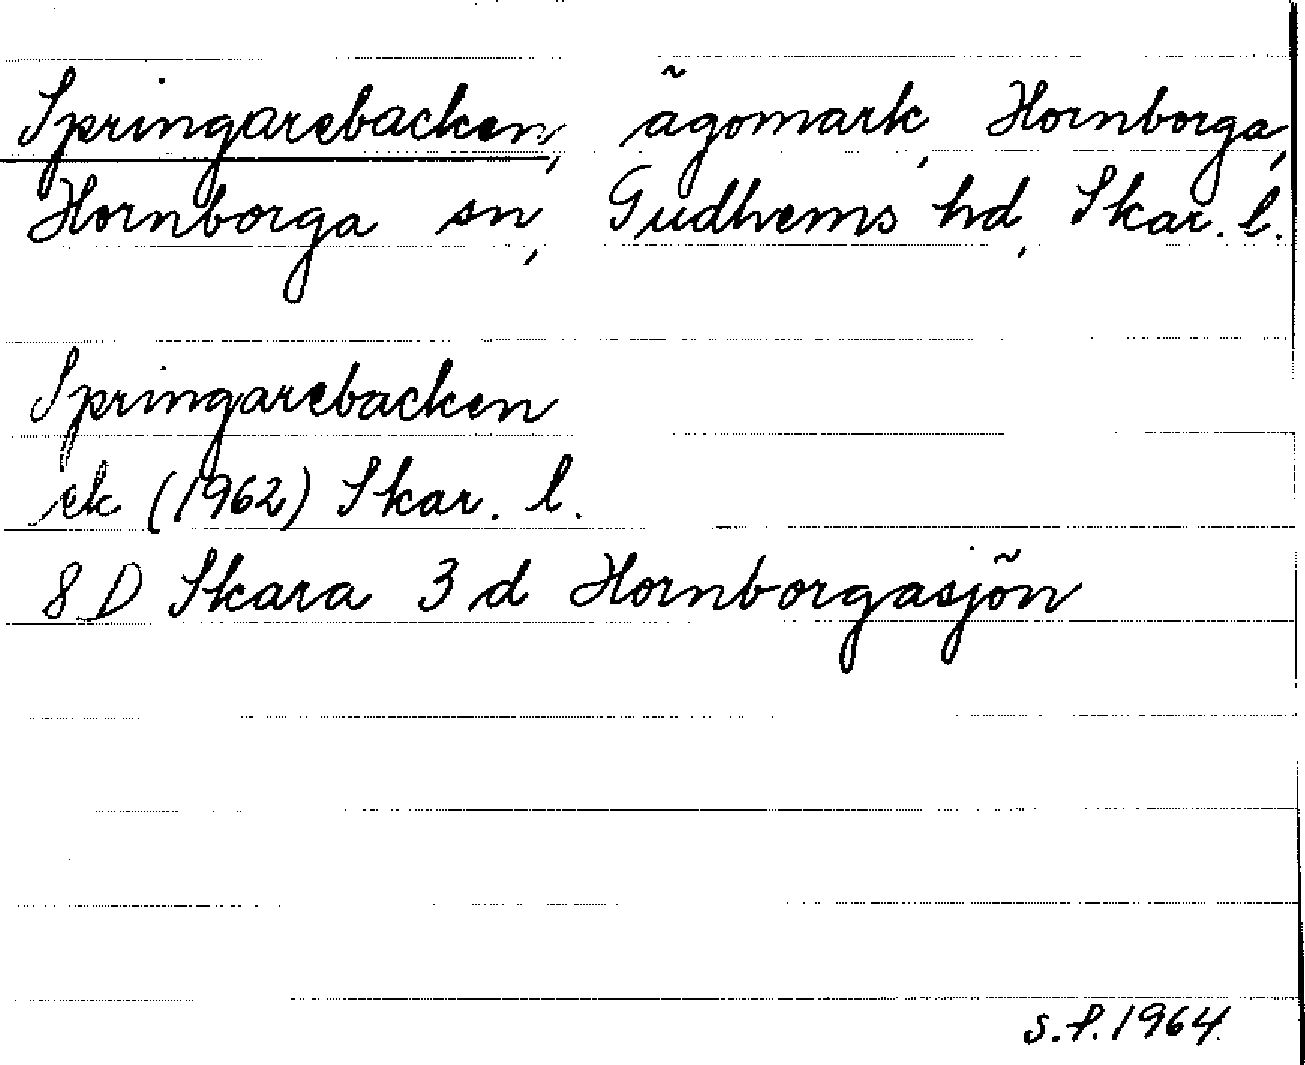 Springarebacken, ägomark, Hornborga,
Hornborga sn, Gudhems hd, Skar. l.
Springarebacken
ek (1962) Skar. l.
8 D Skara 3 d Hornborgasjön
S.P. 1964.